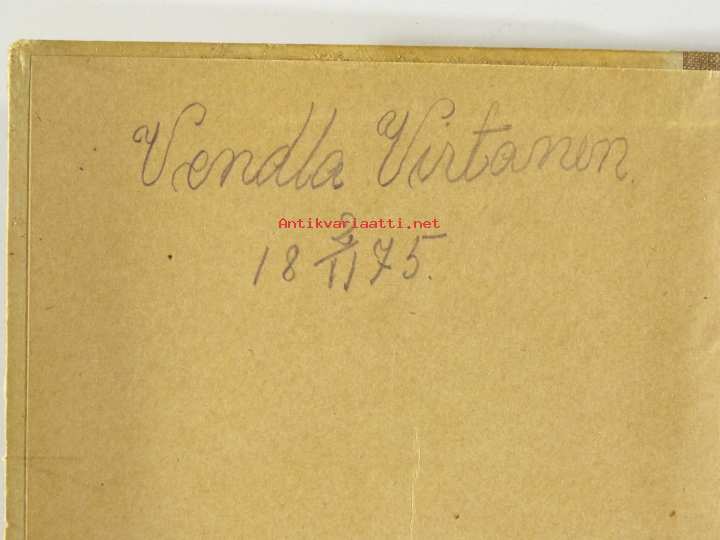 Vendla Virtanen.
Antikvariaatti.net
18 2/11 75.